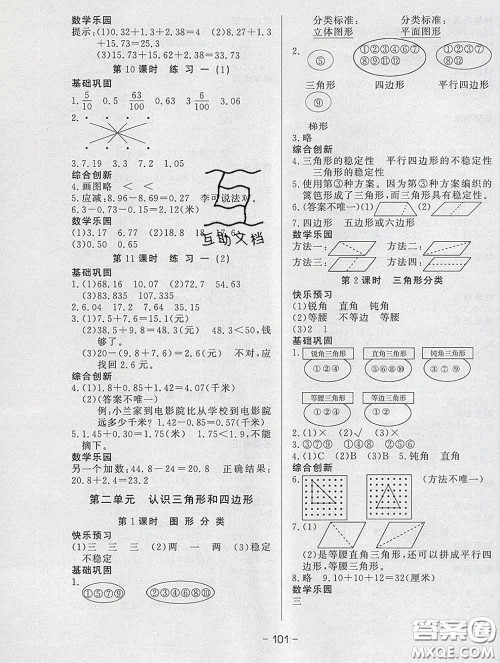 数学乐园
提示:(1)0.32+1.3+2.38=4 (2)8.27+1.3
+15.73=25.3(米) (3)8.27+1.3+2.38
+15.73
第10课时 练习一(1)
基础巩固
1. 5/10 0.5 63/100 3 6/100 3.06
2.
3.7.19 3.3 7.2 1.05
综合创新
4.画图略 < < <
5.应减:8.96-8.69=0.27 李可说法对。
6.3-0.73-0.15=2.12(米)
数学乐园
(1)3.17 (2)18.87 18 18.87
(3)0.50 0.65
第11课时 练习一(2)
基础巩固
1.(1)68.16 10.07 (2)72.7 54.63
2.7.06 9.04 8.10 15.32
3.(1)7.5+7.6=15.1(元)
(2)38.5+9.8=48.3(元) 48.3<50,钱
够了。
(3)20-(9.8+8.6)=1.6(元) 不对,应
找回2.6元。
综合创新
4.(1)1.8+0.85+1.42=4.07(千米)
(2)(答案不唯一)
例如:小兰家到电影院比从学校到电影院
远多少千米?1.8-0.85=0.95(千米)
5.1.45+0.30=1.75(米) 1.75<1.80,不能
摘下。
数学乐园
另一个加数:44.8-24=20.8 正确结果:
20.8+2.4=23.2
第二单元 认识三角形和四边形
第1课时 图形分类
快乐预习
(1)三 三 三 (2)两 一 两 (3)稳定
不稳定
基础巩固
1. ①⑤⑦⑨ ②③④⑥⑧⑩
分类标准: 分类标准:
立体图形 平面图形
2.
三角形 四边形 平行四边形
⑨
梯形
3.略
综合创新
4.三角形的稳定性 平行四边形的不稳定性
三角形的稳定性
5.使用第③种方案。因为第③种方案编织的
篱笆形成了三角形,而三角形具有稳定性。
6.(答案不唯一)
7.四边形 五边形或六边形
数学乐园
方法一: 方法二:
方法三: 方法四:
第2课时 三角形分类
快乐预习
(1)锐角 直角 钝角
(2)等腰 不等边 等腰
(3)2 1
基础巩固
1. 锐角三角形 直角三角形 钝角三角形
等腰三角形 等边三角形
2.(1)× (2)√ (3)×
综合创新
6. (方法不唯一)
7.(1)
(2)是等腰直角三角形,还可以拼成平行四
边形。
8.略 9.10+10+12=32(厘米)
数学乐园
三
互助文档
- 101 -
答案圈
MXQE.COM